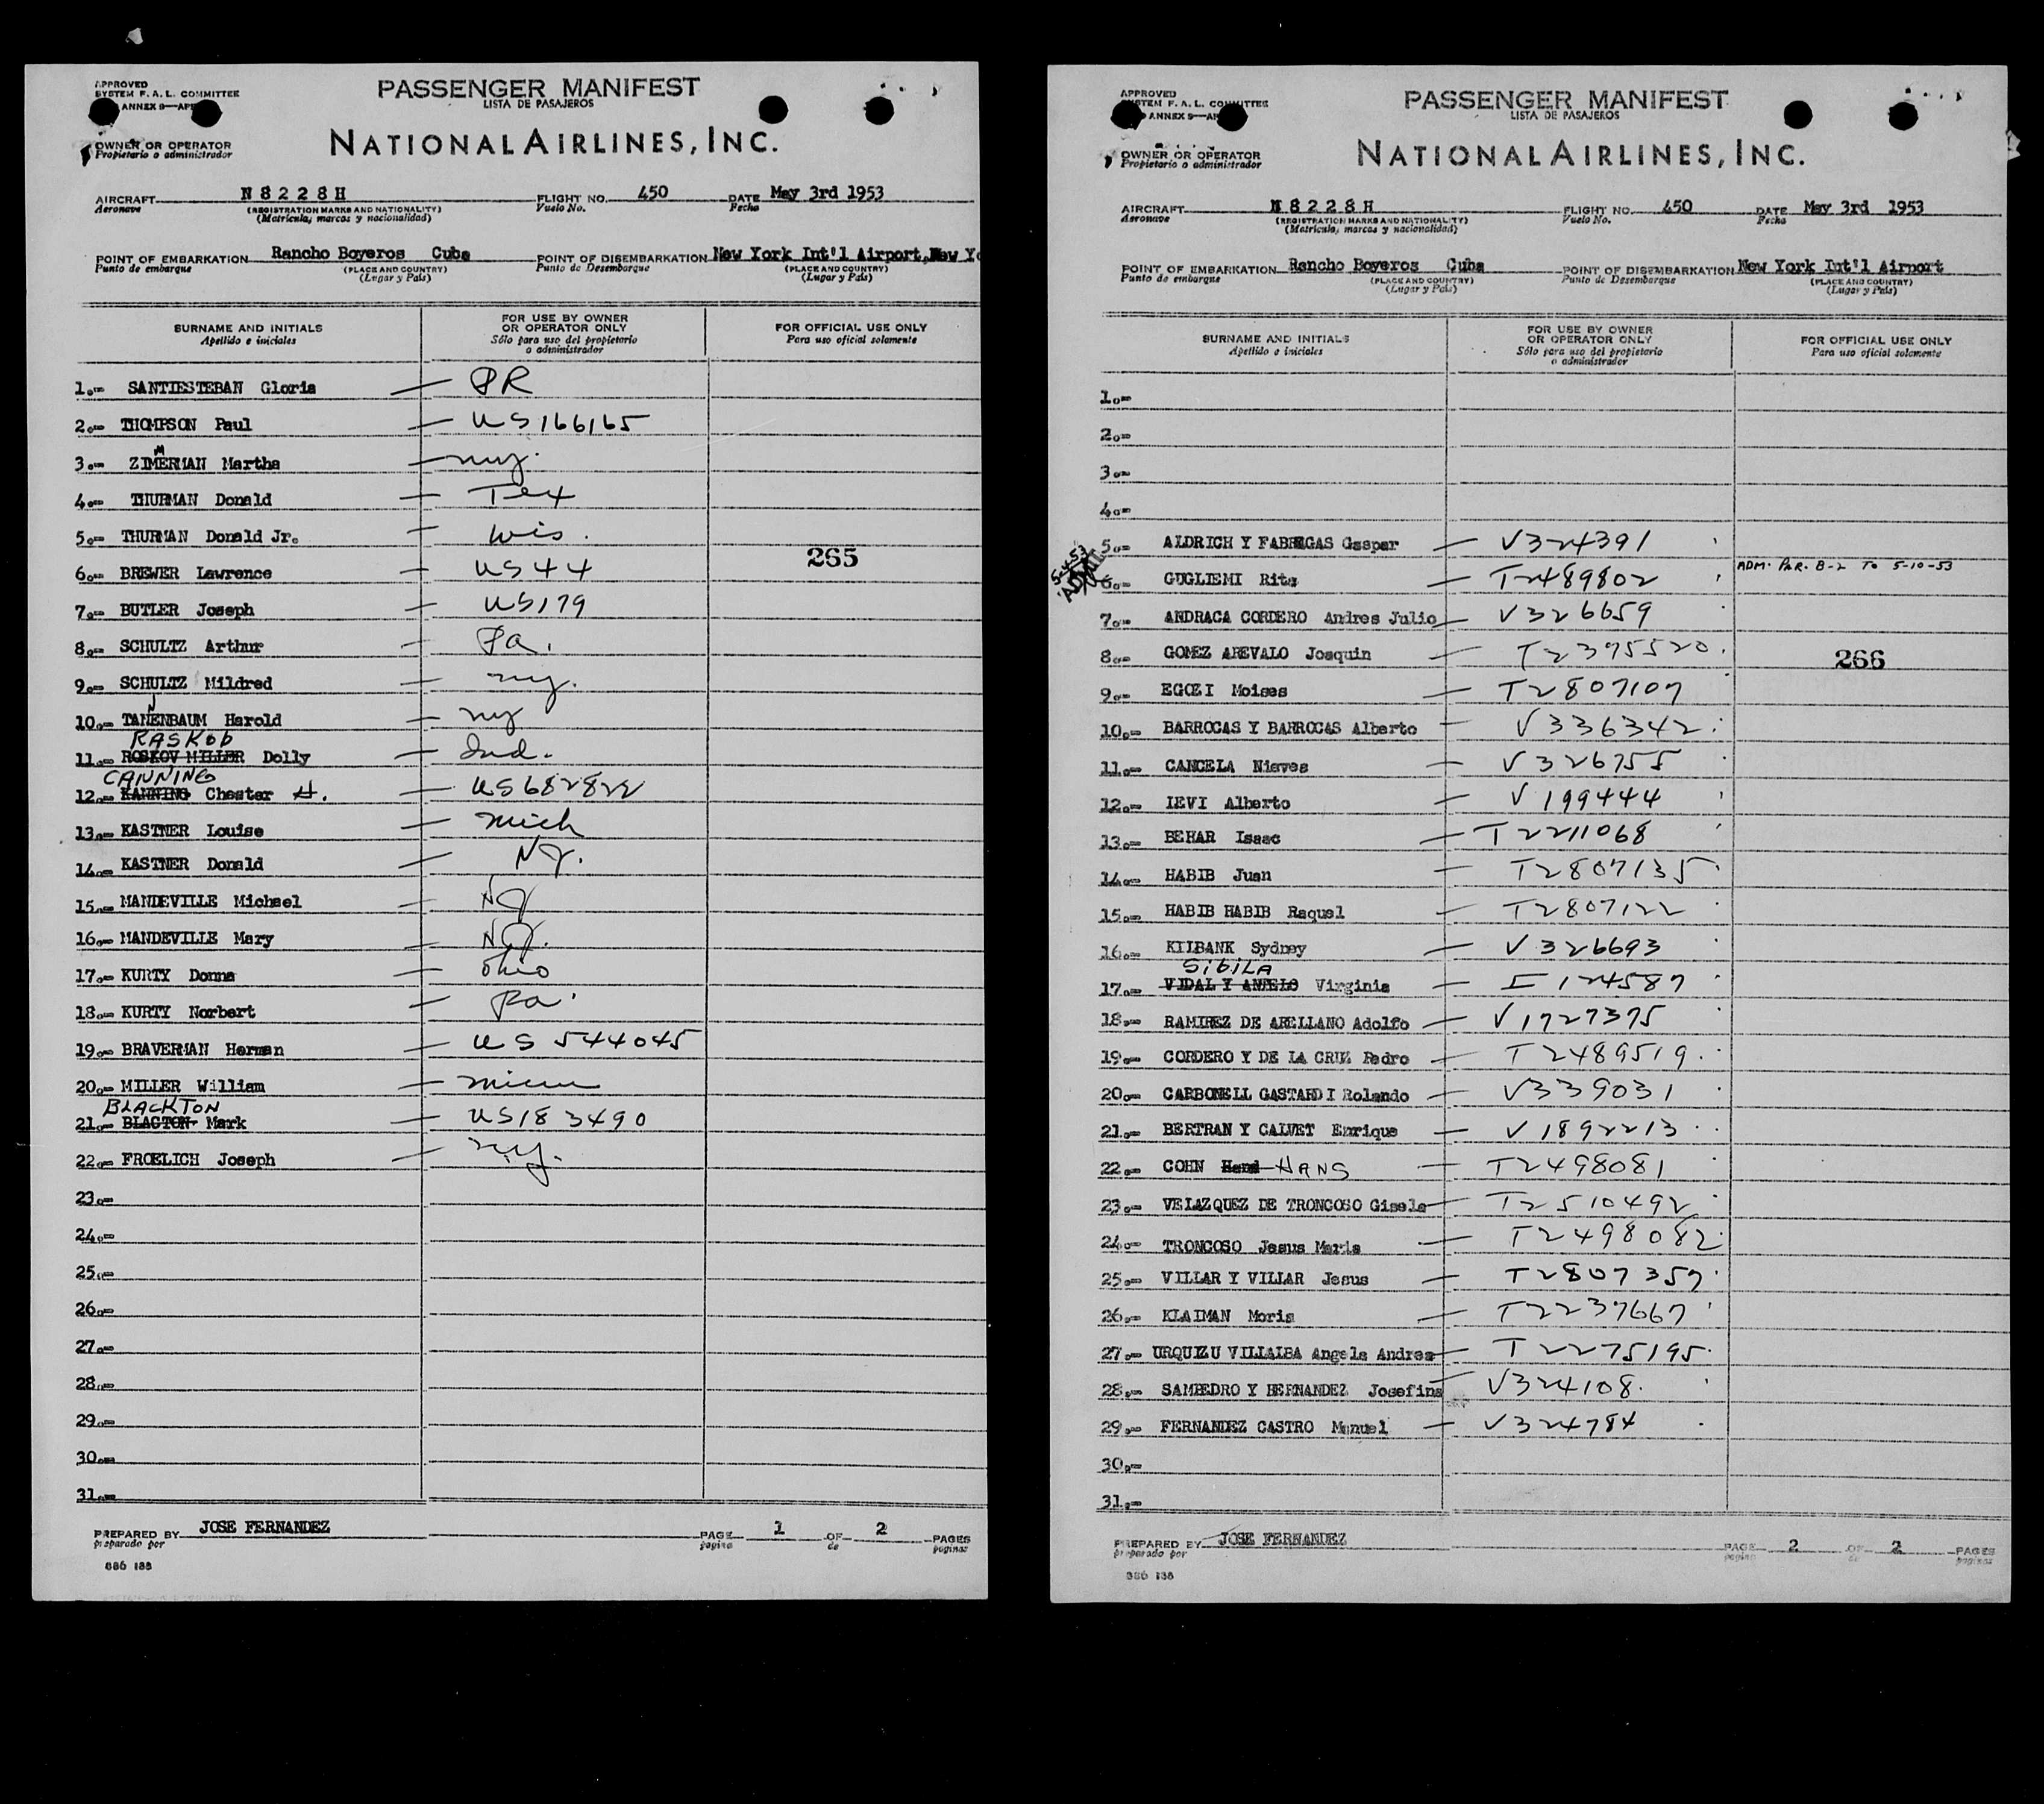 APPROVED
SYSTEM F. A. L. COMMITTEE
ANNEX 9—AP
PASSENGER MANIFEST
LISTA DE PASAJEROS
OWNER OR OPERATOR
Propietario o administrador
NATIONAL AIRLINES, INC.
AIRCRAFT N 8 2 2 8 H FLIGHT NO. 450 DATE May 3rd 1953
Aeronave (REGISTRATION MARKS AND NATIONALITY) Vuelo No. Fecha
(Matrícula, marcas y nacionalidad)
POINT OF EMBARKATION Rancho Boyeros Cuba POINT OF DISEMBARKATION New York Int'l Airport, New Yo
Punto de embarque (PLACE AND COUNTRY) Punto de Desembarque (PLACE AND COUNTRY)
(Lugar y País) (Lugar y País)
SURNAME AND INITIALS FOR USE BY OWNER OR OPERATOR ONLY FOR OFFICIAL USE ONLY
Apellido e iniciales Sólo para uso del propietario o administrador Para uso oficial solamente
1.- SANTIESTEBAN Gloria — PR
2.- THOMPSON Paul — US166165
3.- ZIMERMAN Martha — ny.
M
4.- THURMAN Donald — Tex
5.- THURMAN Donald Jr. — Wis.
265
6.- BREWER Lawrence — US44
7.- BUTLER Joseph — US179
8.- SCHULTZ Arthur — Pa.
9.- SCHULTZ Mildred — ny.
10.- TANENBAUM Harold — ny
RASKOD
11.- ROSKOV MILLER Dolly — Ind.
CANNING
12.- KANNING Chester H. — US682822
13.- KASTNER Louise — Mich
14.- KASTNER Donald — NJ.
15.- MANDEVILLE Michael — NJ
16.- MANDEVILLE Mary — NJ.
17.- KURTY Donna — Ohio
18.- KURTY Norbert — Pa.
19.- BRAVERMAN Herman — US 544045
20.- MILLER William —
BLACKTON
21.- BLACTON Mark — US183490
22.- FROELICH Joseph — n.y.
23.-
24.-
25.-
26.-
27.-
28.-
29.-
30.-
31.-
PREPARED BY JOSE FERNANDEZ PAGE 1 OF 2 PAGES
preparado por pagina de paginas
886 188
APPROVED
SYSTEM F. A. L. COMMITTEE
ANNEX 9—AP
PASSENGER MANIFEST
LISTA DE PASAJEROS
OWNER OR OPERATOR
Propietario o administrador
NATIONAL AIRLINES, INC.
AIRCRAFT N 8 2 2 8 H FLIGHT NO. 450 DATE May 3rd 1953
Aeronave (REGISTRATION MARKS AND NATIONALITY) Vuelo No. Fecha
(Matrícula, marcas y nacionalidad)
POINT OF EMBARKATION Rancho Boyeros Cuba POINT OF DISEMBARKATION New York Int'l Airport
Punto de embarque (PLACE AND COUNTRY) Punto de Desembarque (PLACE AND COUNTRY)
(Lugar y País) (Lugar y País)
SURNAME AND INITIALS FOR USE BY OWNER OR OPERATOR ONLY FOR OFFICIAL USE ONLY
Apellido e iniciales Sólo para uso del propietario o administrador Para uso oficial solamente
1.-
2.-
3.-
4.-
5.- ALDRICH Y FABREGAS Gaspar — V324391
5-4-53
6.- GUGLIEMI Rita — T2489802 ADM. PAR. B-2 TO 5-10-53
7.- ANDRACA CORDERO Andres Julio — V326659
8.- GOMEZ AREVALO Joaquin — T2395520.
266
9.- EGOZI Moises — T2807107
10.- BARROCAS Y BARROCAS Alberto — V336342
11.- CANCELA Nieves — V326755
12.- LEVI Alberto — V199444
13.- BEHAR Isaac — T2211068
14.- HABIB Juan — T2807135
15.- HABIB HABIB Raquel — T2807122
16.- KILBANK Sydney — V326693
SIBILA
17.- VIDAL Y ANGELO Virginia — I124587
18.- RAMIREZ DE ARELLANO Adolfo — V1727375
19.- CORDERO Y DE LA CRUZ Pedro — T2489519.
20.- CARBONELL GASTARDI Rolando — V339031
21.- BERTRAN Y CALVET Enrique — V1892213
22.- COHN Hand HANS — T2498081
23.- VELAZQUEZ DE TRONCOSO Gisela — T2510492
24.- TRONCOSO Jesus Maria — T2498082
25.- VILLAR Y VILLAR Jesus — T2807357
26.- KLAIMAN Moris — T2237667
27.- URQUIZU VILLALBA Angela Andrea — T2275195.
28.- SAMPEDRO Y HERNANDEZ Josefina V324108.
29.- FERNANDEZ CASTRO Manuel — V324784
30.-
31.-
PREPARED BY JOSE FERNANDEZ PAGE 2 OF 2 PAGES
preparado por pagina de paginas
886 188